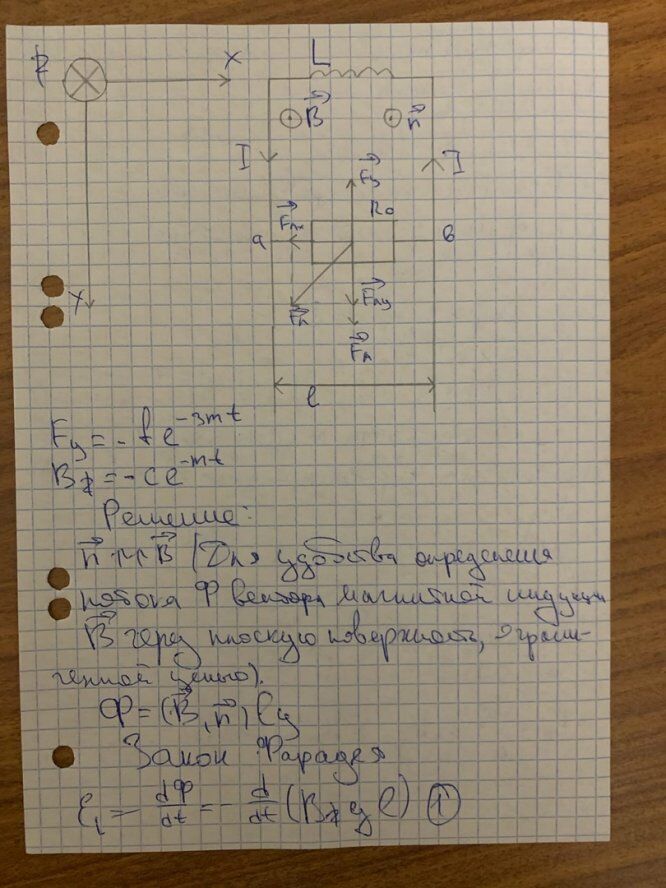 z X L
B→ n→
I I
Fy→
Fлx→ R₀
a b
Y Fлy→
Fл→ FA→
l
Fy = - f e^-3mt
Bz = - c e^-mt
Решение:
n→ ↑↑ B→ (Для удобства определения
потока Ф вектора магнитной индукции
B→ через плоскую поверхность, ограни-
ченной цепью).
Ф = (B→, n→) l y
Закон Фарадея
ε_i = - dФ/dt = - d/dt (Bz y l) ①